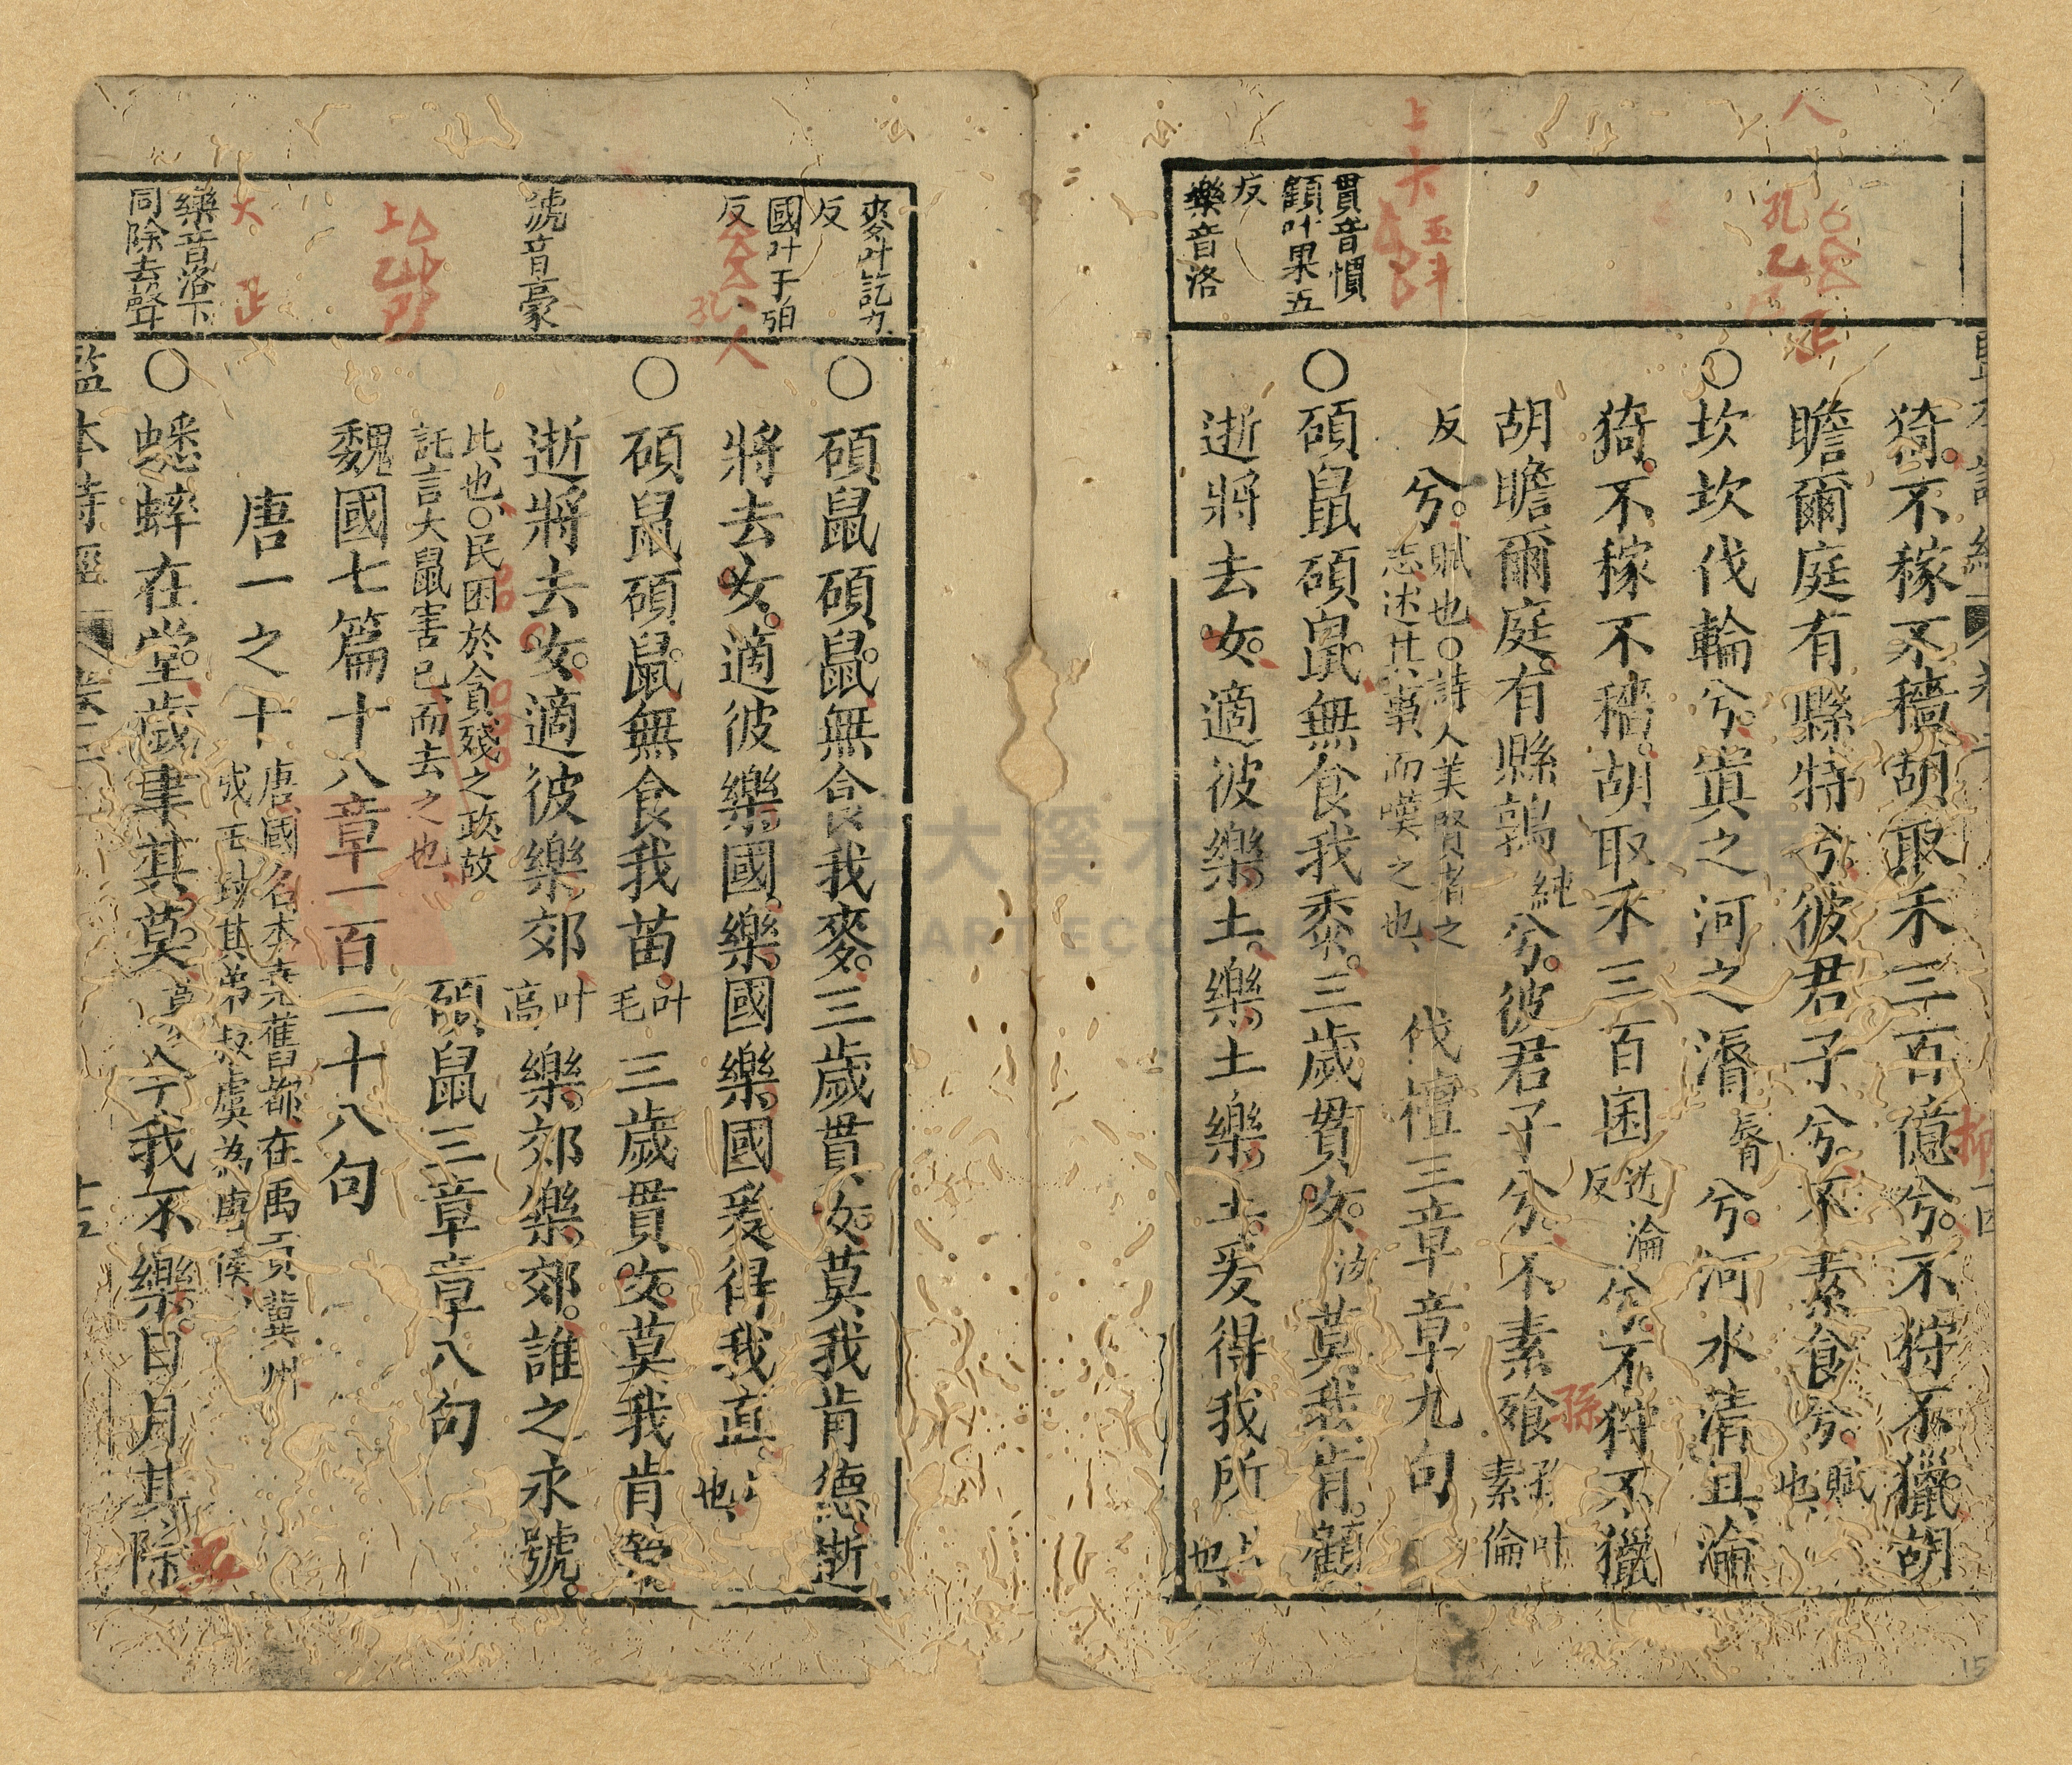 猗不稼不穡胡取禾三百億兮不狩不獵胡
瞻爾庭有縣特兮彼君子兮不素食兮賦也
○坎坎伐輪兮寘之河之漘脣兮河水清且淪
猗不稼不穡胡取禾三百囷兮不狩不獵
胡瞻爾庭有縣鶉純兮彼君子兮不素飧
反兮賦也○詩人美賢者之
志述其事而嘆之也
伐檀三章章九句
貫音慣
顧叶果五
反
○碩鼠碩鼠無食我黍三歲貫女汝莫我肯顧
樂音洛
逝將去女適彼樂土樂土樂土爰得我所
比也
麥叶訖力
反
○碩鼠碩鼠無食我麥三歲貫女莫我肯德逝
國叶于逼
反
將去女適彼樂國樂國樂國爰得我直
也
○碩鼠碩鼠無食我苗叶毛三歲貫女莫我肯勞
號音豪
逝將去女適彼樂郊叶高樂郊樂郊誰之永號
比也○民困於貪殘之政故
託言大鼠害已而去之也
碩鼠三章章八句
魏國七篇十八章一百二十八句
唐一之十
唐國名本堯舊都在禹貢冀州
成王封其弟叔虞為唐侯
樂音洛下
同除去聲
○蟋蟀在堂歲聿其莫今我不樂日月其除
監本詩經 卷三